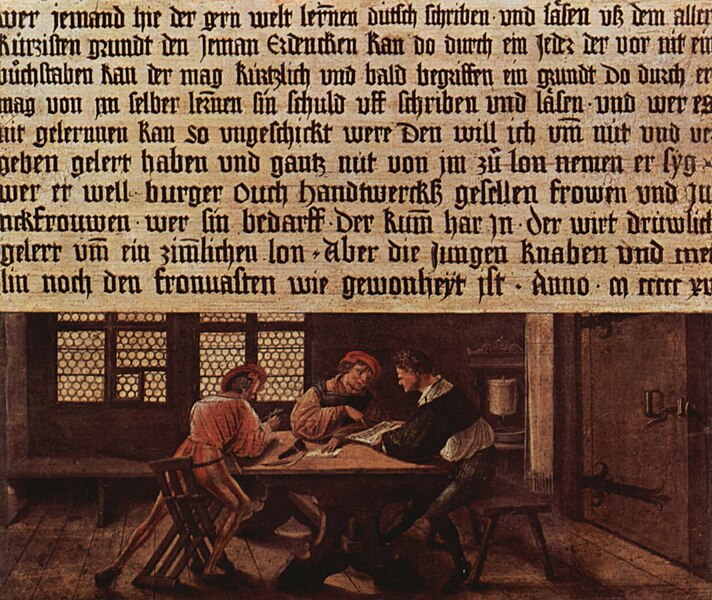 wer jemand hie der gern welt lernen dütsch schriben und läsen uß dem aller
kürzisten grundt den Jeman Erdencken kan do durch ein Jeder der vor nit ein
büchstaben kan der mag kürtzlich und bald begriffen ein grundt do durch er
mag von jm selber lernen sin schuld uff schriben und läsen und wer es
nit gelernnen kan so ungeschickt were Den will ich um̄ nüt und ver
geben gelert haben und gantz nüt von jm zü lon nemen er syg
wer er well burger Ouch handtwercks gesellen frowen und ju
nckfrouwen wer sin bedarff Der kum̄ har jn der wirt drüwlich
gelert um̄ ein zim̄lichen lon Aber die jungen knaben und meit
lin noch den fronuasten wie gewonheyt jst Anno m ccccc xvi